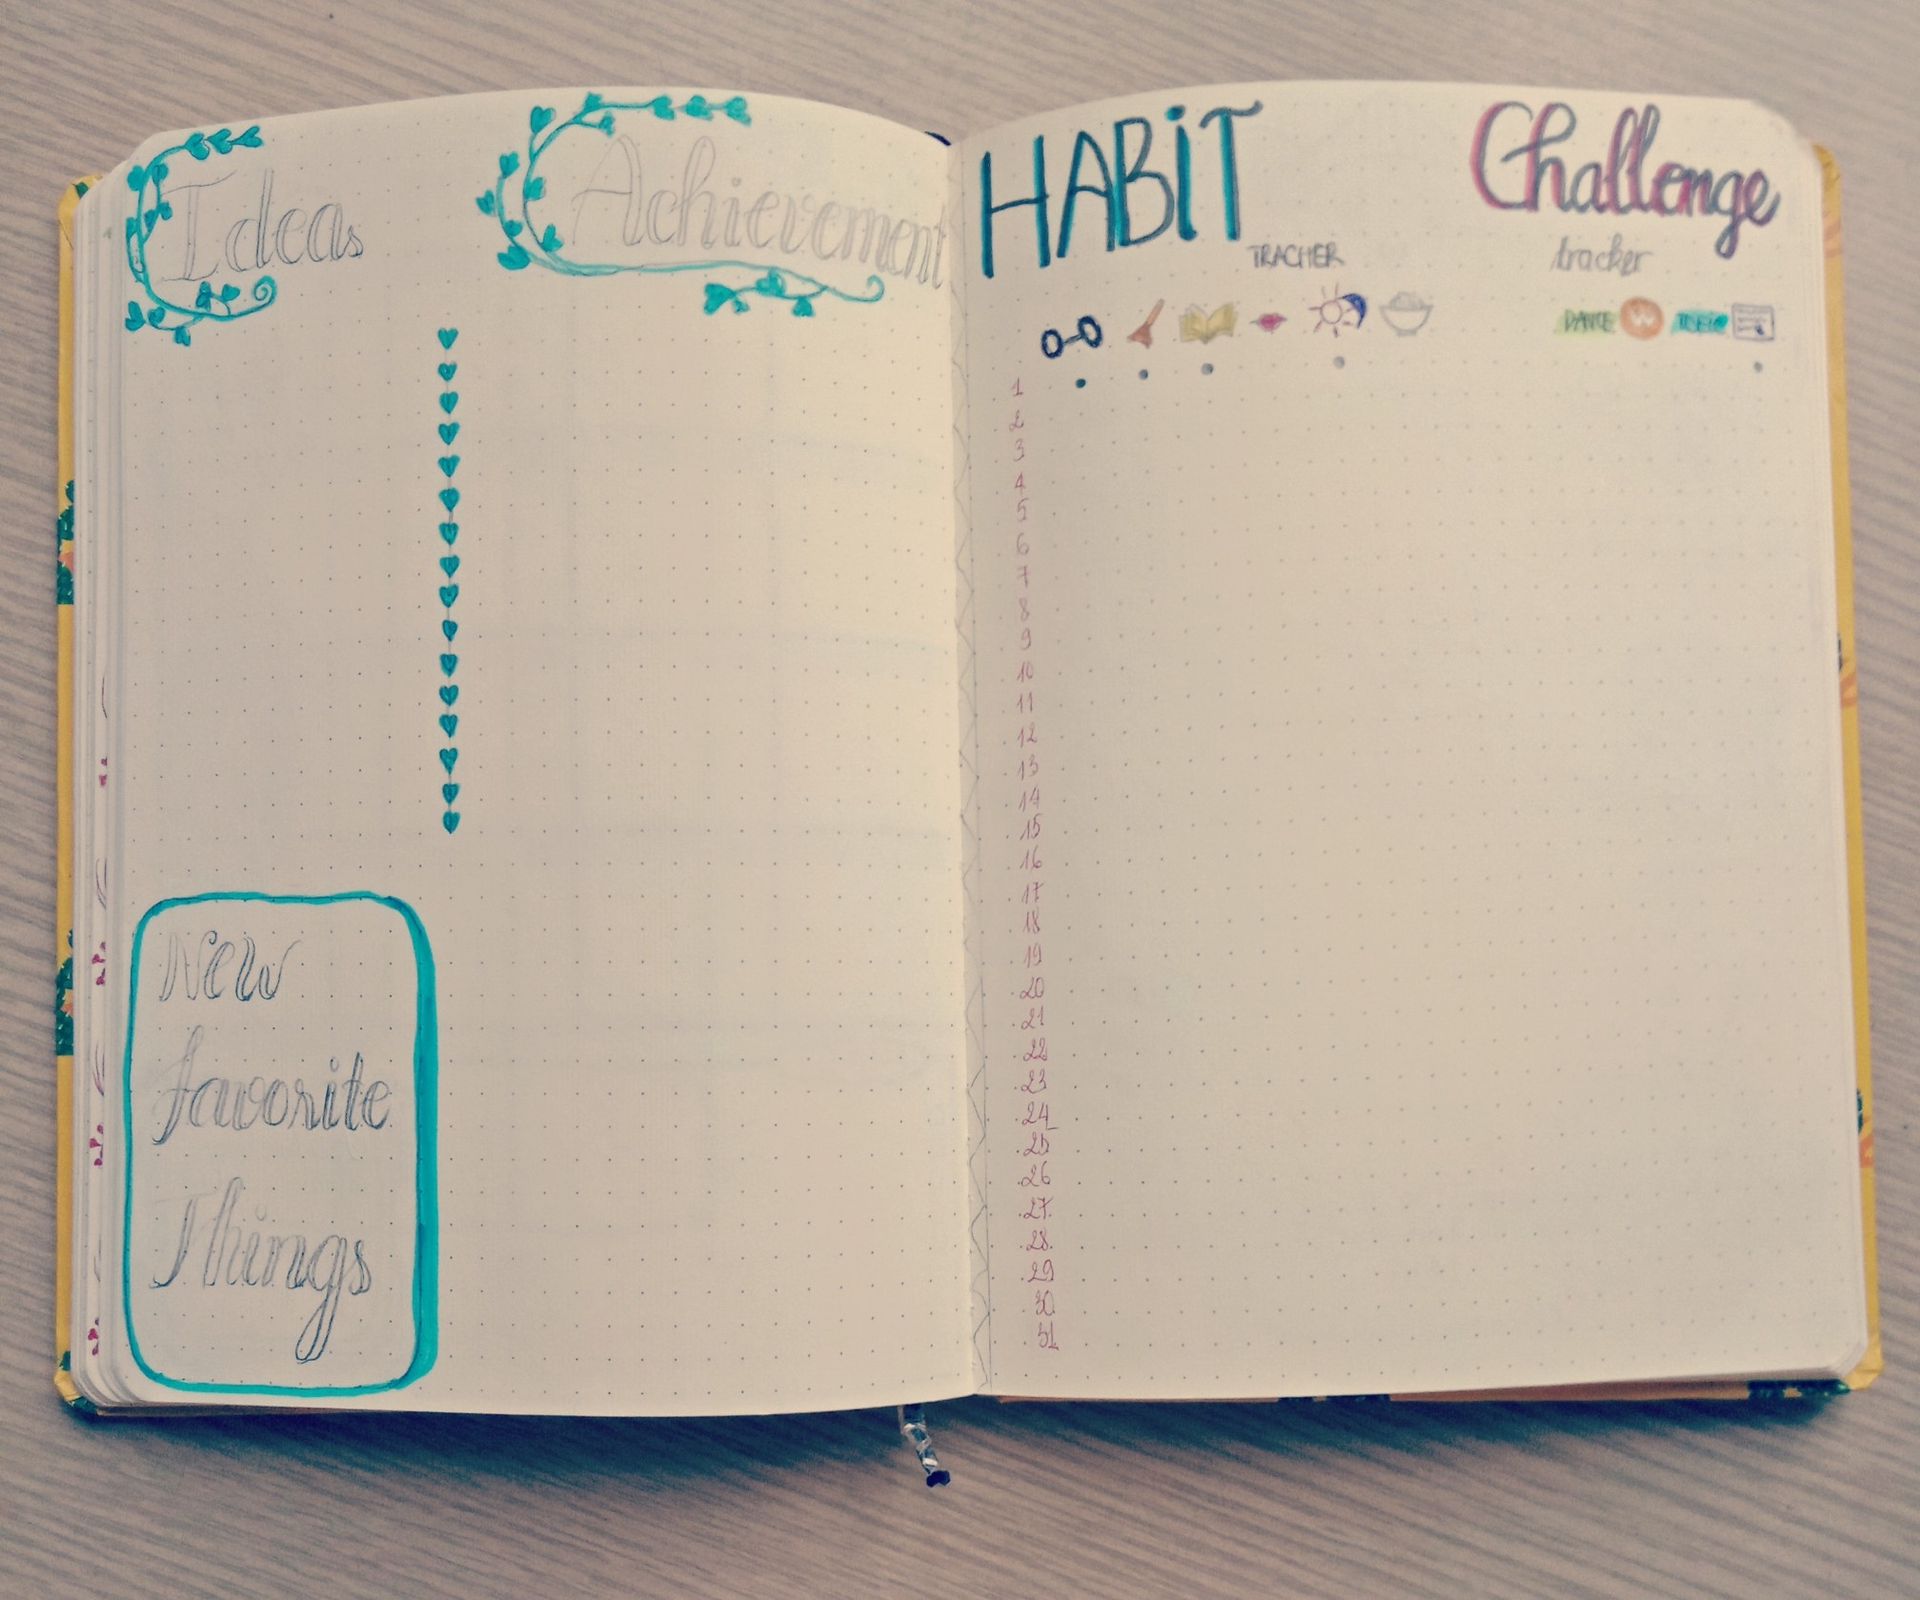 Ideas
Achievement
New
favorite
Things
HABiT
TRACKER
Challenge
tracker
DANCE
1
2
3
4
5
6
7
8
9
10
11
12
13
14
15
16
17
18
19
20
21
22
23
24
25
26
27
28
29
30
31